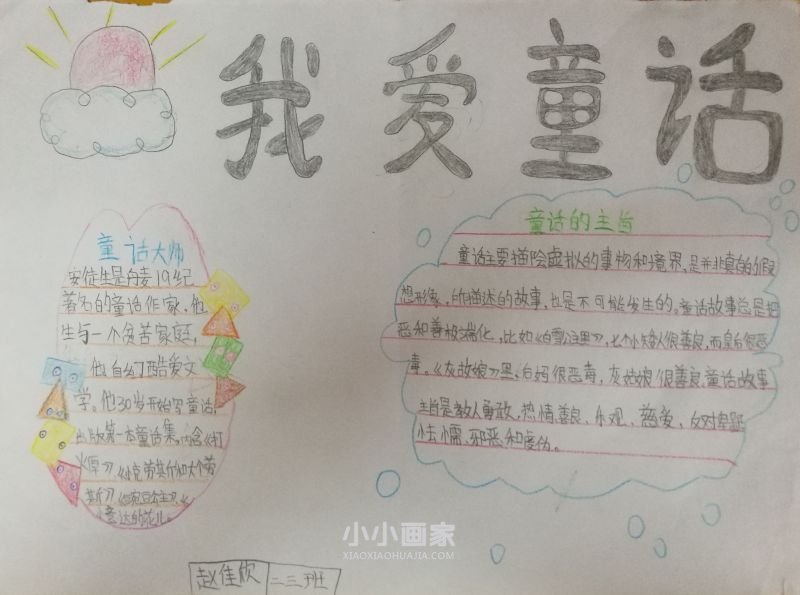 我爱童话
童话大师
安徒生是丹麦19纪
著名的童话作家,他
生与一个贫苦家庭,
他自幻酷爱文
学。他30岁开始写童话,
出版第一本童话集,内含《打
火匣》《小克劳斯和大克劳
斯》《豌豆公主》《
小意达的花儿。
童话的主旨
童话主要描绘虚拟的事物和境界,是并非真的假
想形象,所描述的故事,也是不可能发生的。童话故事总是把
恶和善极端化,比如《白雪公主》里,七个小矮人很善良,而皇后很恶
毒。《灰故娘》里,后妈很恶毒,灰姑娘很善良,童话故事
主旨是教人勇敢,热情,善良、乐观、慈爱、反对卑鄙
怯懦、邪恶和虚伪。
小小画家
XIAOXIAOHUAJIA.COM
赵佳欣 二三班